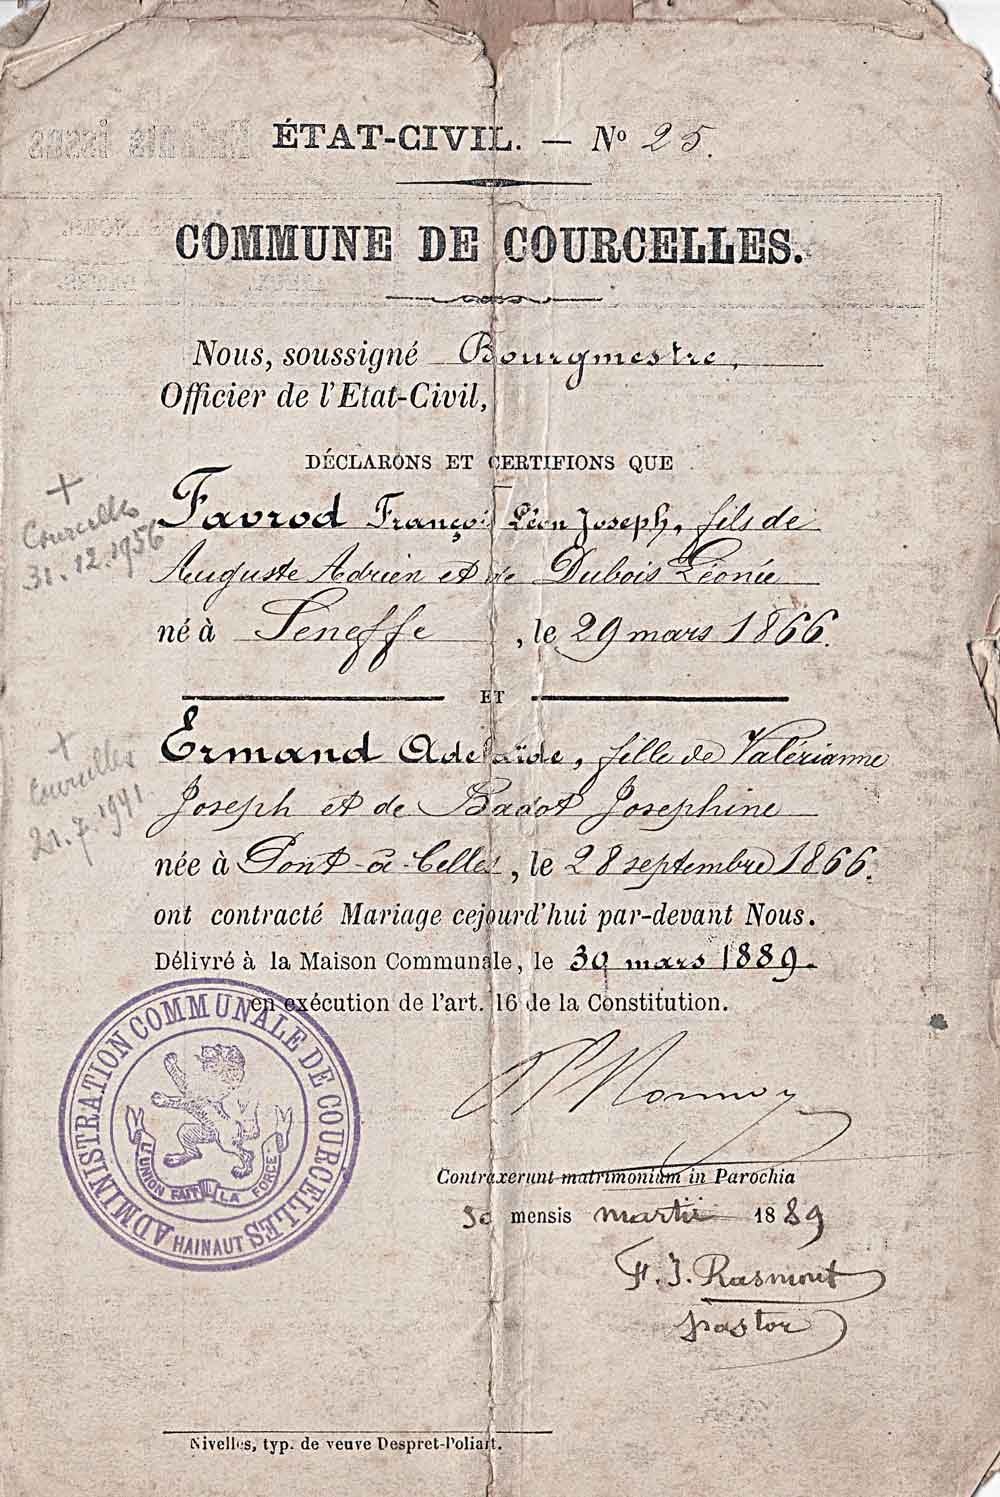 ÉTAT-CIVIL. — No 25.
COMMUNE DE COURCELLES.
Nous, soussigné Bourgmestre,
Officier de l'Etat-Civil,
DÉCLARONS ET CERTIFIONS QUE
+
Courcelles
31.12.1956
Favrod François Léon Joseph, fils de
Auguste Adrien et de Dubois Léonie
né à Seneffe, le 29 mars 1866.
ET
+
Courcelles
21.7.1941.
Ermand Adelaïde, fille de Valérianne
Joseph et de Badot Josephine
née à Pont-à-Celles, le 28 septembre 1866.
ont contracté Mariage cejourd'hui par-devant Nous.
Délivré à la Maison Communale, le 30 mars 1889.
en exécution de l'art. 16 de la Constitution.
ADMINISTRATION COMMUNALE DE COURCELLES
L'UNION FAIT LA FORCE
HAINAUT
Contraxerunt matrimonium in Parochia
30 mensis martii 1889
F. J. Rasmont
pastor
Nivelles, typ. de veuve Despret-Poliart.